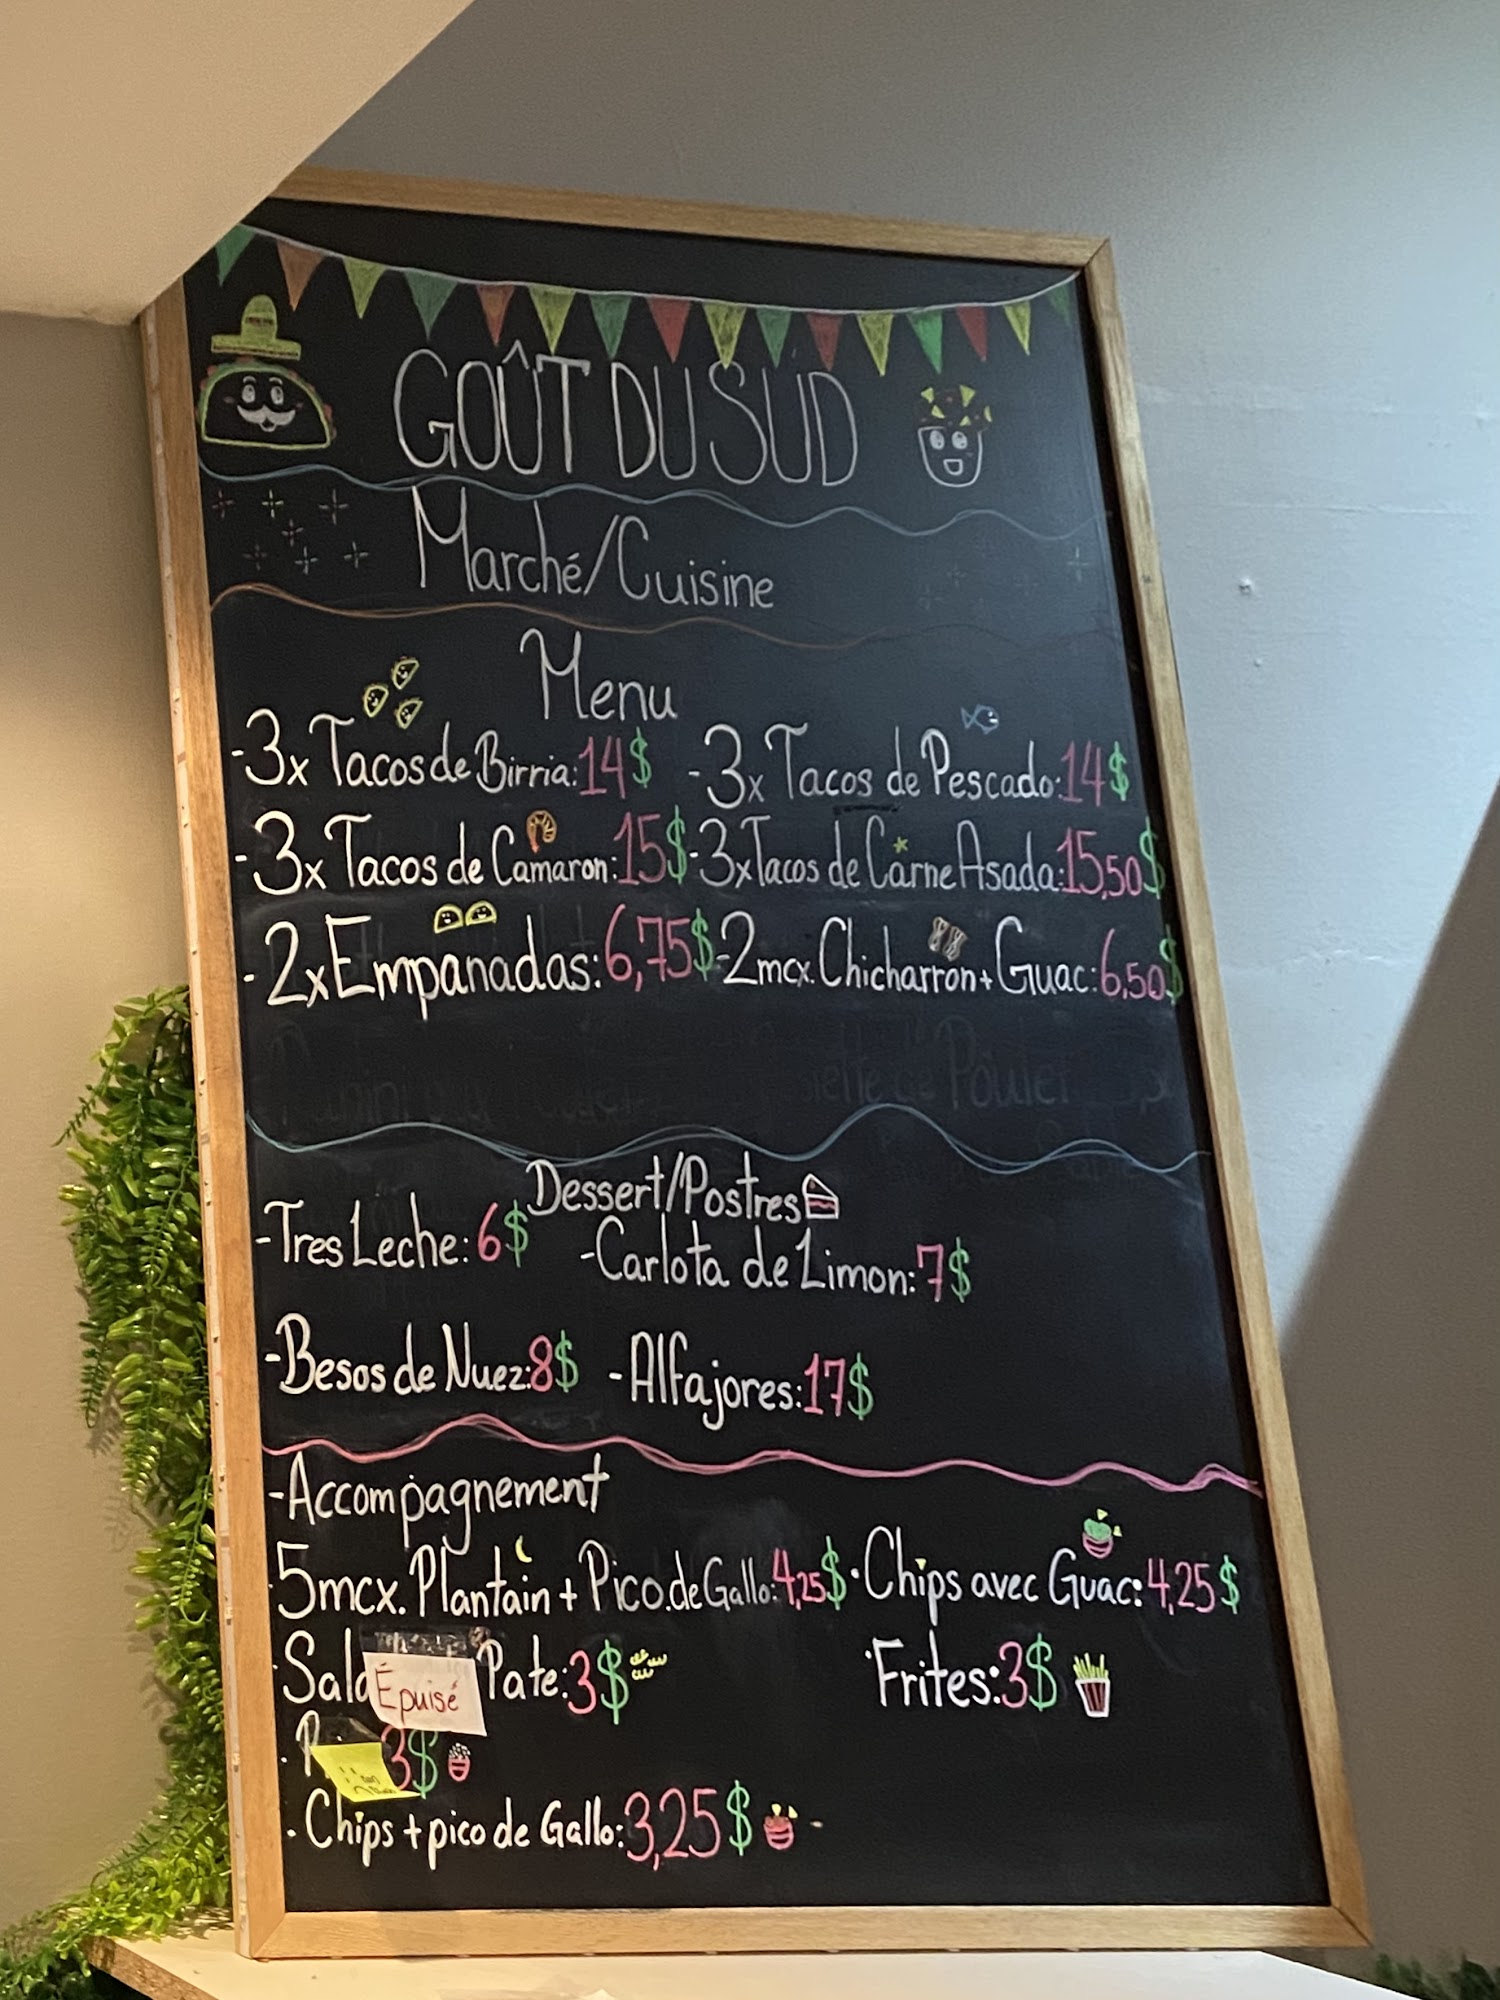 GOÛT DU SUD
Marché/Cuisine
Menu
-3x Tacos de Birria: 14$ -3x Tacos de Pescado: 14$
-3x Tacos de Camaron: 15$ -3x Tacos de Carne Asada: 15,50$
-2x Empanadas: 6,75$ -2mcx. Chicharron + Guac: 6,50$
Poulet
Dessert/Postres
-Tres Leche: 6$ -Carlota de Limon: 7$
-Besos de Nuez: 8$ -Alfajores: 17$
-Accompagnement
·5mcx. Plantain + Pico.de Gallo: 4,25$ ·Chips avec Guac: 4,25$
Épuisé Pate: 3$ ·Frites: 3$
3$
·Chips + pico de Gallo: 3,25$